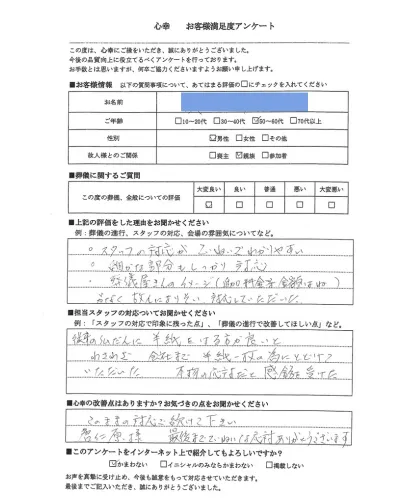 心幸　　お客様満足度アンケート
この度は、心幸にご縁をいただき、誠にありがとうございました。
今後の品質向上に役立てるべくアンケートを行っております。
お手数とは思いますが、何卒ご協力くださいますようお願い申し上げます。
■お客様情報　以下の質問事項について、あてはまる評価の□にチェックを入れてください
お名前
ご年齢　□10～20代　□30～40代　☑50～60代　□70代以上
性別　☑男性　□女性　□その他
故人様とのご関係　□喪主　☑親族　□参加者
■葬儀に関するご質問
大変良い　良い　普通　悪い　大変悪い
この度の葬儀、全般についての評価　☑　□　□　□　□
■上記の評価をした理由をお聞かせください
例：葬儀の進行、スタッフの対応、会場の雰囲気についてなど。
○スタッフの対応がていねいでわかりやすい
・細かな部分もしっかり対応
・葬儀屋さんのイメージ(追加料金 金額
故人によりそい 対応していただいた
■担当スタッフの対応についてお聞かせください
例：「スタッフの対応で印象に残った点」、「葬儀の進行で改善してほしい点」など。
仏だんに 半紙をはる方が良いと
わざわざ 会社まで 半紙一枚の為にとどけて
いただいた 本物の応対だと 感銘を受けた
■心幸の改善点はありますか？お気づきの点をお聞かせください
このままの対応で続けて下さい
様 最後までていねいな応対ありがとうございます
■このアンケートをインターネット上で紹介してもよろしいですか？
☑かまわない　□イニシャルのみならかまわない　□掲載しない
お声を真摯に受け止め、今後も誠意をもって対応させていただきます。
最後までご記入いただき、誠にありがとうございました。